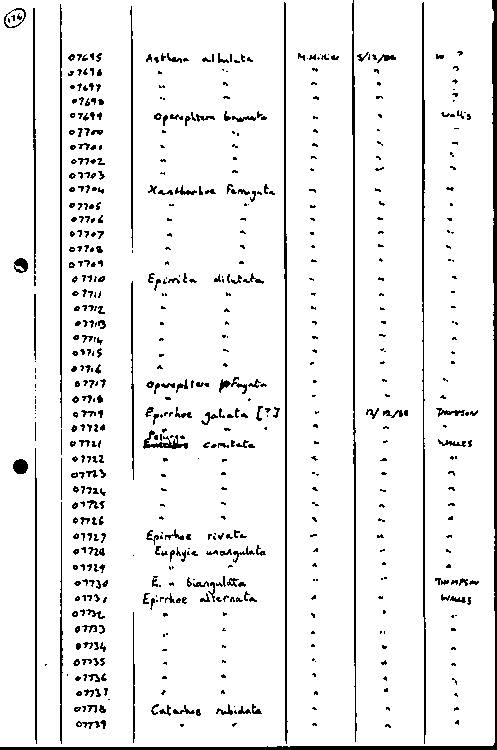 176
07695 Asthena albulata M.Hillier 5/12/88 W ?
07696 " " " " "
07697 " " " " "
07698 " " " " "
07699 Operophtera brumata " " Wallis
07700 " " " " "
07701 " " " " "
07702 " " " " "
07703 " " " " "
07704 Xanthorhoe Ferrugata " " "
07705 " " " " "
07706 " " " " "
07707 " " " " "
07708 " " " " "
07709 " " " " "
07710 Epirrita dilutata " " "
07711 " " " " "
07712 " " " " "
07713 " " " " "
07714 " " " " "
07715 " " " " "
07716 " " " " "
07717 Operophtera Fagata " " "
07718 " " " " "
07719 Epirrhoe galiata [?] " 12/12/88 THOMPSON
07720 " " " " "
07721 Pelurga comitata " " WALLES
07722 " " " " "
07723 " " " " "
07724 " " " " "
07725 " " " " "
07726 " " " " "
07727 Epirrhoe rivata " " "
07728 Euphyia unangulata " " "
07729 " " " " "
07730 E. " biangulata " " THOMPSON
07731 Epirrhoe alternata " " WALLES
07732 " " " " "
07733 " " " " "
07734 " " " " "
07735 " " " " "
07736 " " " " "
07737 " " " " "
07738 Catarhoe rubidata " " "
07739 " " " " "